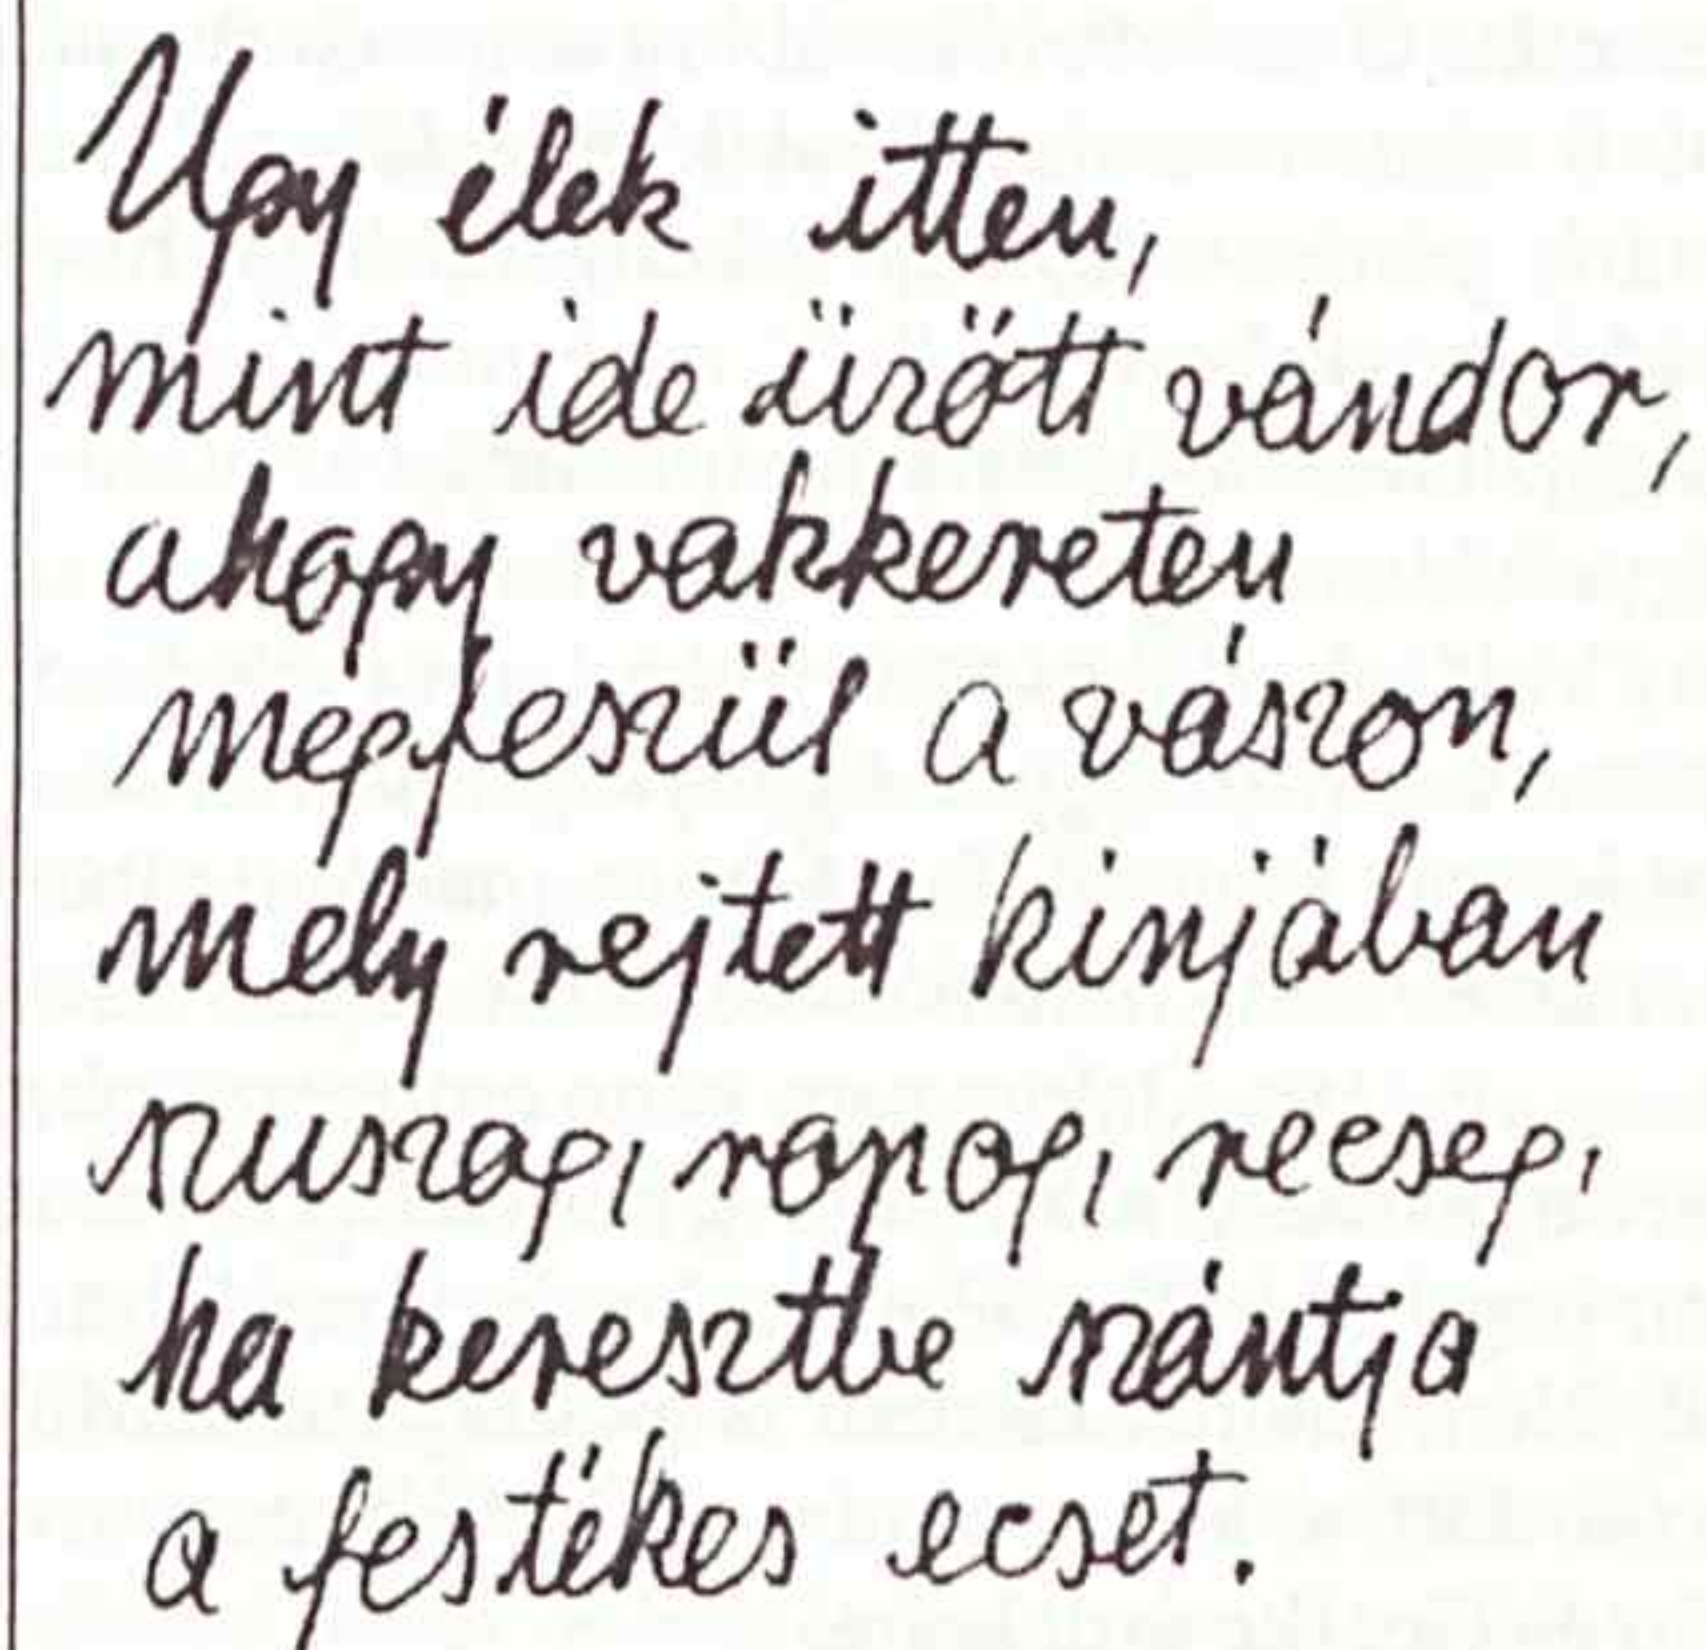 Ugy élek itten,
mint ide űzött vándor,
ahogy vakkereten
megfeszül a vászon,
mely rejtett kinjában
szuszog, ropog, recseg,
ha keresztbe szántja
a festékes ecset.